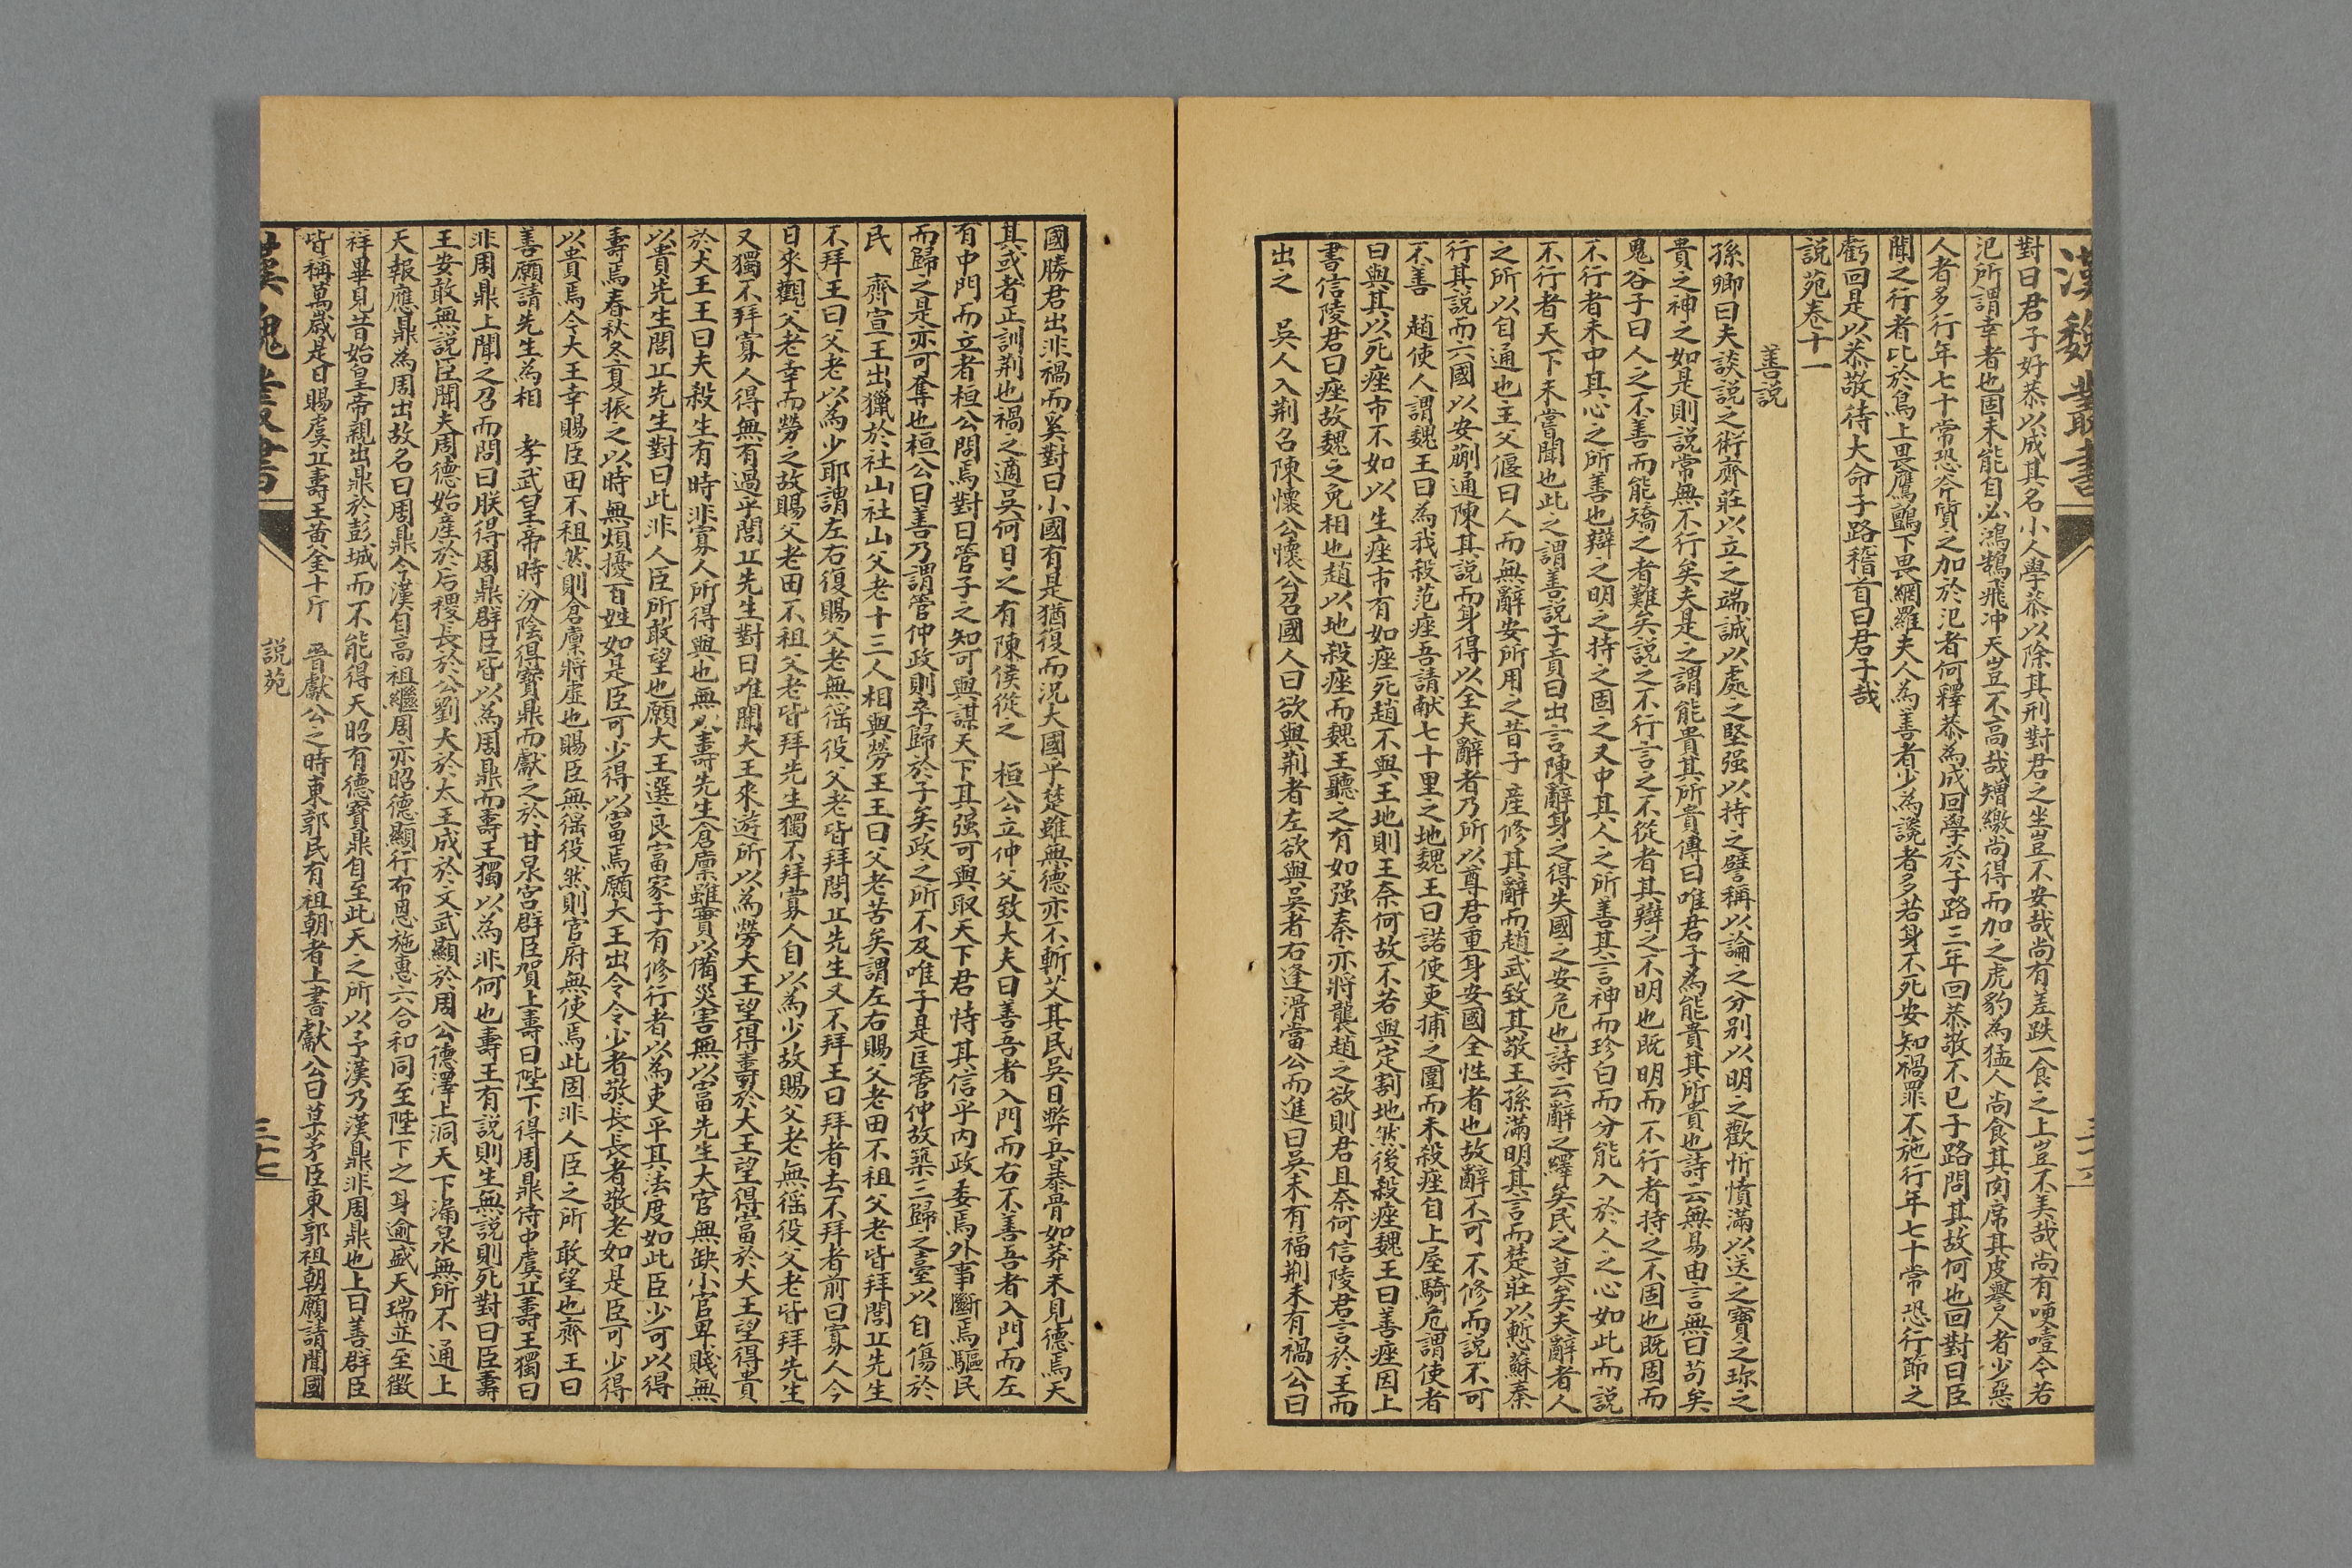 漢魏叢書
對曰君子好恭以成其名小人學恭以除其刑對君之坐豈不安哉尚有差跌一食之上豈不美哉尚有哽噎今若
氾所謂幸者也固未能自必鴻鵠飛冲天豈不高哉矰繳尚得而加之虎豹為猛人尚食其肉席其皮譽人者少惡
人者多行年七十常恐斧質之加於氾者何釋恭為成回學於子路三年回恭敬不已子路問其故何也回對曰臣
聞之行者比於鳥上畏鷹鸇下畏網羅夫人為善者少為讒者多若身不死安知禍罪不施行年七十常恐行節之
虧回是以恭敬待大命子路稽首曰君子哉
說苑卷十一
善説
孫卿曰夫談説之術齊莊以立之端誠以處之堅强以持之譬稱以論之分别以明之歡忻憤滿以送之寶之珍之
貴之神之如是則説常無不行矣夫是之謂能貴其所貴傳曰唯君子為能貴其所貴也詩云無易由言無曰苟矣
鬼谷子曰人之不善而能矯之者難矣説之不行言之不從者其辯之不明也既明而不行者持之不固也既固而
不行者未中其心之所善也辯之明之持之固之又中其人之所善其言神而珍白而分能入於人之心如此而説
不行者天下未嘗聞也此之謂善説子貢曰出言陳辭身之得失國之安危也詩云辭之繹矣民之莫矣夫辭者人
之所以自通也主父偃曰人而無辭安所用之昔子産修其辭而趙武致其敬王孫滿明其言而楚莊以慙蘇秦
行其説而六國以安蒯通陳其説而身得以全夫辭者乃所以尊君重身安國全性者也故辭不可不修而説不可
不善　趙使人謂魏王曰為我殺范痤吾請献七十里之地魏王曰諾使吏捕之圍而未殺痤自上屋騎危謂使者
曰與其以死痤市不如以生痤市有如痤死趙不與王地則王奈何故不若與定割地然後殺痤魏王曰善痤因上
書信陵君曰痤故魏之免相也趙以地殺痤而魏王聽之有如强秦亦將襲趙之欲則君且奈何信陵君言於王而
出之　吳人入荆召陳懷公懷公召國人曰欲與荆者左欲與吳者右逢滑當公而進曰吳未有福荆未有禍公曰
國勝君出非禍而奚對曰小國有是猶復而况大國乎楚雖無德亦不斬艾其民吳日弊兵暴骨如莽未見德焉天
其或者正訓荆也禍之適吳何日之有陳侯從之　桓公立仲父致大夫曰善吾者入門而右不善吾者入門而左
有中門而立者桓公問焉對曰管子之知可與謀天下其强可與取天下君恃其信乎内政委焉外事斷焉驅民
而歸之是亦可奪也桓公曰善乃謂管仲政則卒歸於子矣政之所不及唯子是匡管仲故築三歸之臺以自傷於
民　齊宣王出獵於社山社山父老十三人相與勞王王曰父老苦矣謂左右賜父老田不租父老皆拜閭丘先生
不拜王曰父老以為少耶謂左右復賜父老無徭役父老皆拜閭丘先生又不拜王曰拜者去不拜者前曰寡人今
日來觀父老幸而勞之故賜父老田不租父老皆拜先生獨不拜寡人自以為少故賜父老無徭役父老皆拜先生
又獨不拜寡人得無有過乎閭丘先生對曰唯聞大王來遊所以為勞大王望得壽於大王望得富於大王望得貴
於大王王曰夫殺生有時非寡人所得與也無以壽先生倉廪雖實以備災害無以富先生大官無缺小官卑賤無
以貴先生閭丘先生對曰此非人臣所敢望也願大王選良富家子有修行者以為吏平其法度如此臣少可以得
壽焉春秋冬夏振之以時無煩擾百姓如是臣可少得以富焉願大王出令令少者敬長長者敬老如是臣可少得
以貴焉今大王幸賜臣田不租然則倉廪將虛也賜臣無徭役然則官府無使焉此固非人臣之所敢望也齊王曰
善願請先生為相　孝武皇帝時汾陰得寳鼎而獻之於甘泉宫群臣賀上壽曰陛下得周鼎侍中虞丘壽王獨曰
非周鼎上聞之召而問曰朕得周鼎群臣皆以為周鼎而壽王獨以為非何也壽王有説則生無説則死對曰臣壽
王安敢無説臣聞夫周德始産於后稷長於公劉大於太王成於文武顯於周公德澤上洞天下漏泉無所不通上
天報應鼎為周出故名曰周鼎今漢自高祖繼周亦昭德顯行布恩施惠六合和同至陛下之身逾盛天瑞並至徵
祥畢見昔始皇帝親出鼎於彭城而不能得天昭有德寳鼎自至此天之所以予漢乃漢鼎非周鼎也上曰善群臣
皆稱萬歲是日賜虞丘壽王黄金十斤　晋獻公之時東郭民有祖朝者上書獻公曰草茅臣東郭祖朝願請聞國
漢魏叢書
説苑
三十七